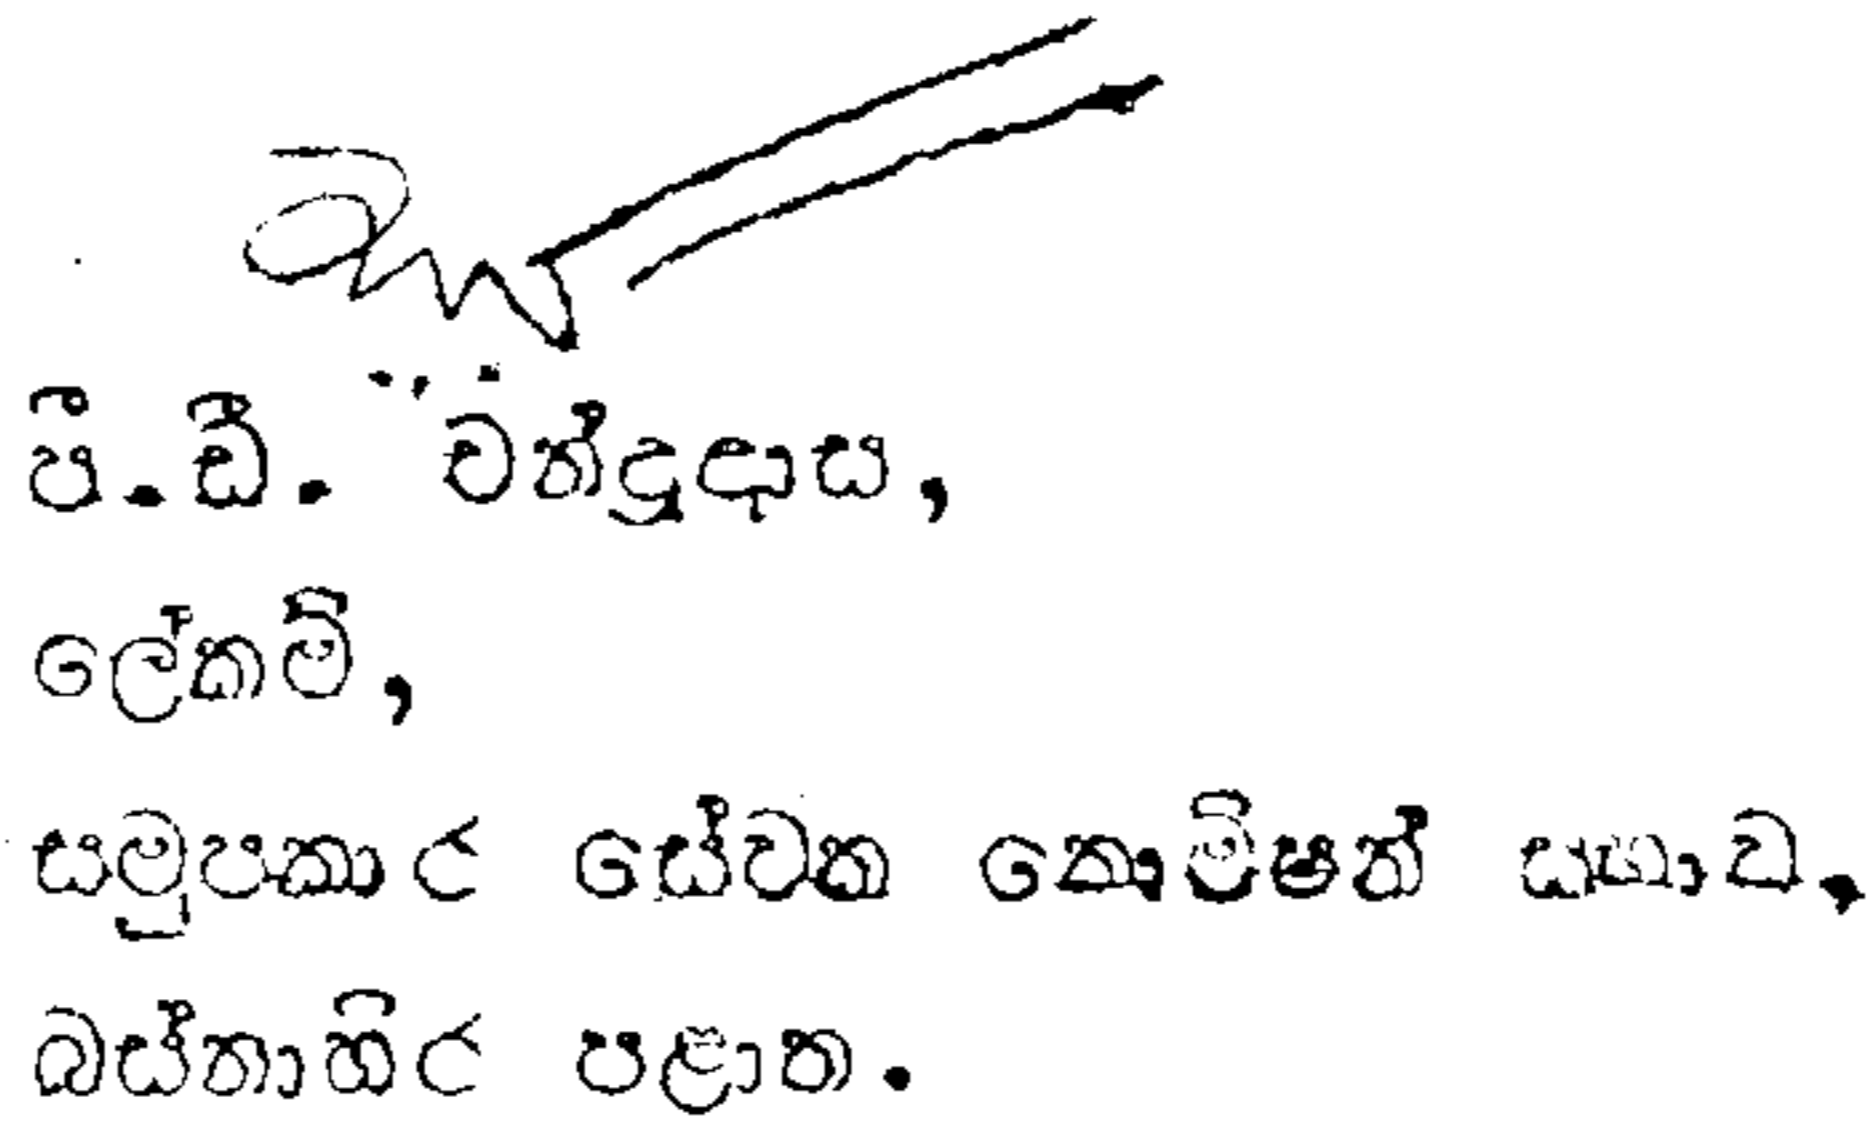 පී.ඩී. චන්ද්‍රදාස,
ලේකම්,
සමුපකාර සේවක කොමිෂන් සභාව,
බස්නාහිර පළාත.